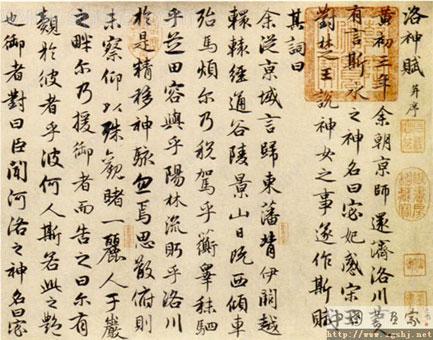 洛神賦 并序
黃初三年余朝京師還濟洛川
有言斯水之神名曰宓妃感宋
對楚王說神女之事遂作斯賦
其詞曰
余從京域言歸東藩背伊闕越
轘轅經通谷陵景山日既西傾車
殆馬煩尔乃稅駕乎蘅皋秣駟
乎芝田容與乎陽林流眄乎洛川
於是精移神駭忽焉思散俯則
未察仰以殊觀睹一麗人于巖
之畔尔乃援御者而告之曰尔有
覿於彼者乎彼何人斯若此之艷
也御者對曰臣聞河洛之神名曰宓